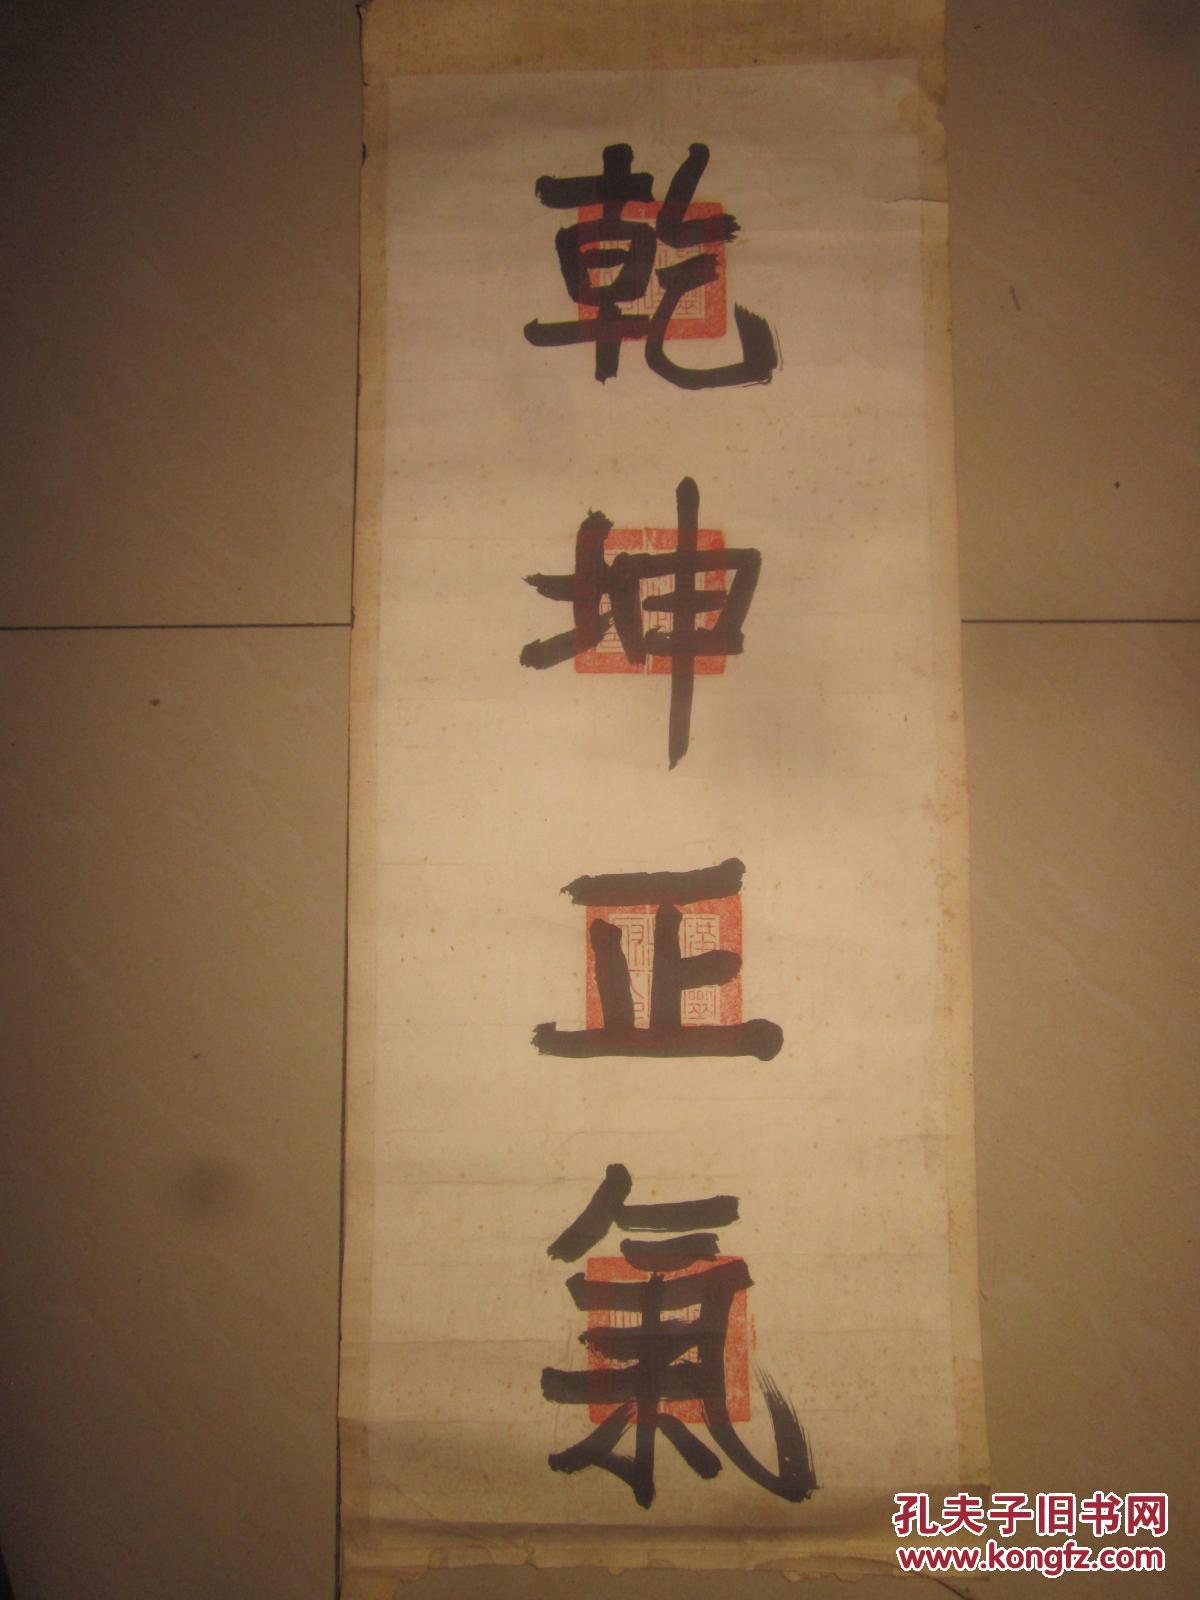 乾
坤
正
氣
孔夫子旧书网
www.kongfz.com